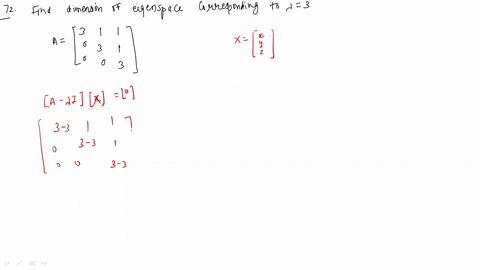 72. Find dimension of eigenspace corresponding to λ = 3
A = [ 3 1 1
0 3 1
0 0 3 ]
X = [ x
y
z ]
[A - λI] [X] = [0]
[ 3-3 1 1 ]
0 3-3 1
0 0 3-3